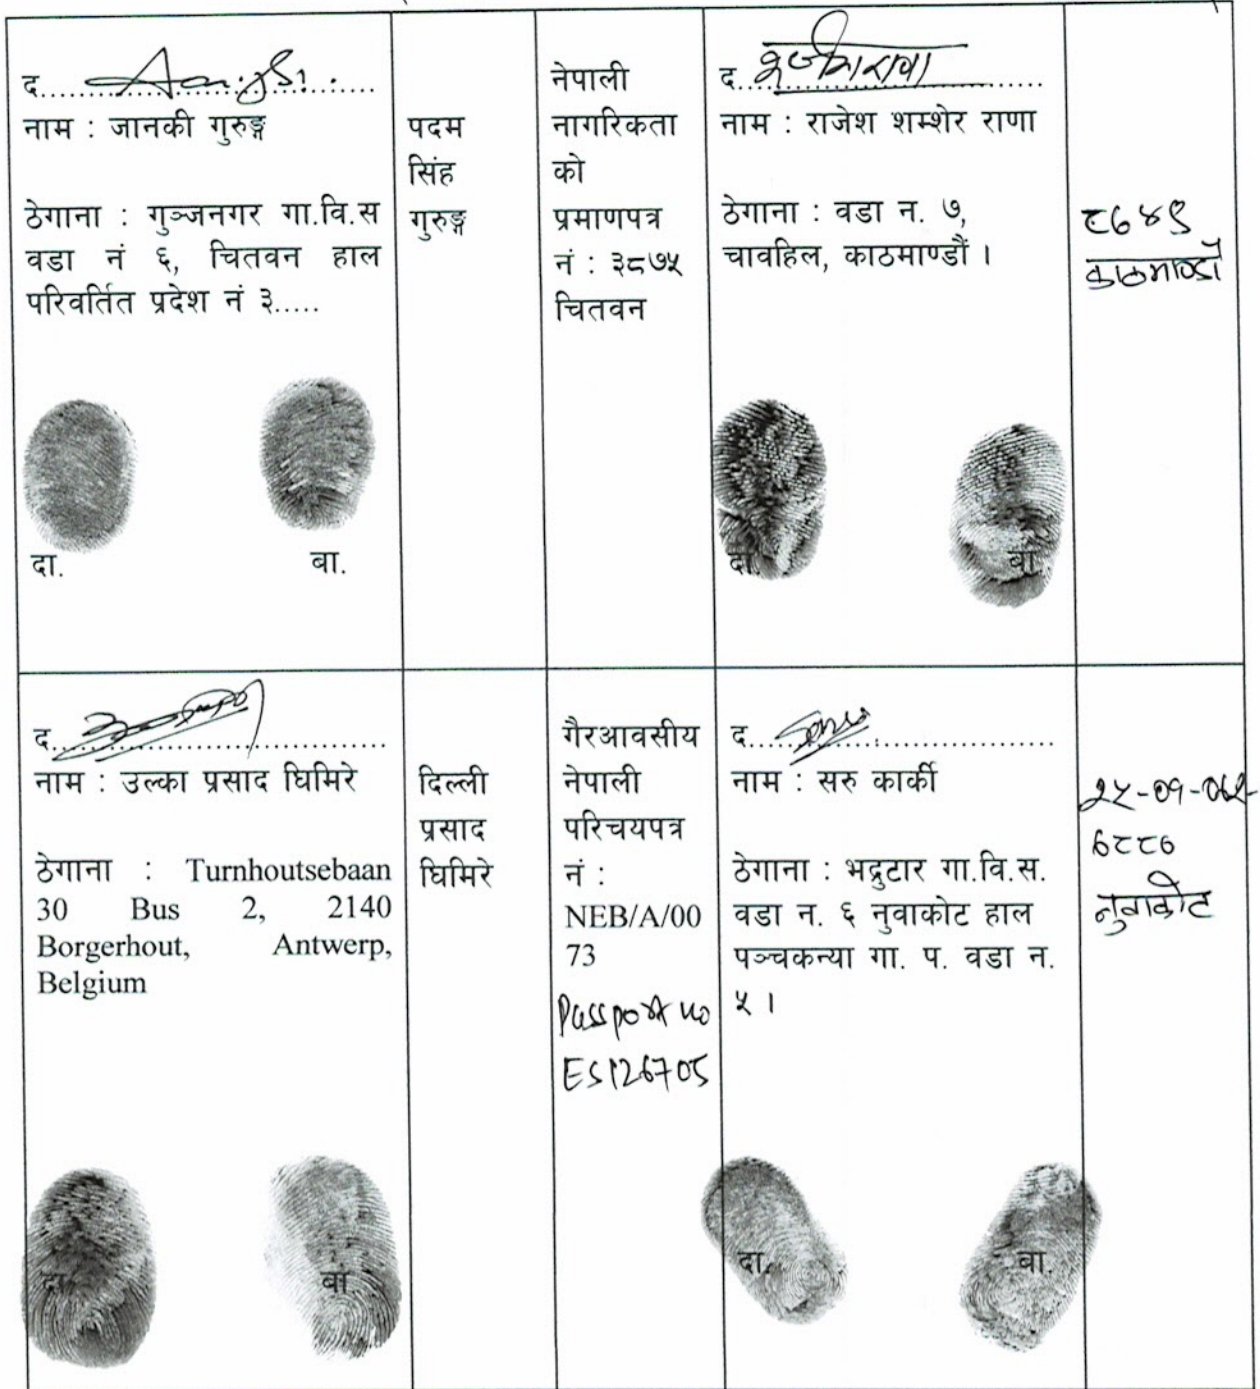 द..............................
नाम : जानकी गुरुङ्ग
ठेगाना : गुञ्जनगर गा.वि.स
वडा नं ६, चितवन हाल
परिवर्तित प्रदेश नं ३.....
दा. बा.
पदम
सिंह
गुरुङ्ग
नेपाली
नागरिकता
को
प्रमाणपत्र
नं : ३८७५
चितवन
द..............................
नाम : राजेश शम्शेर राणा
ठेगाना : वडा न. ७,
चावहिल, काठमाण्डौं ।
दा. बा.
८७४९
काठमाण्डौ
द..............................
नाम : उल्का प्रसाद घिमिरे
ठेगाना : Turnhoutsebaan
30 Bus 2, 2140
Borgerhout, Antwerp,
Belgium
दा. बा.
दिल्ली
प्रसाद
घिमिरे
गैरआवसीय
नेपाली
परिचयपत्र
नं :
NEB/A/00
73
Passport no
ES126705
द..............................
नाम : सरु कार्की
ठेगाना : भद्रुटार गा.वि.स.
वडा न. ६ नुवाकोट हाल
पञ्चकन्या गा. प. वडा न.
५ ।
दा. बा.
नुवाकोट